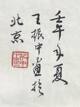 壬午夏
王振中画於
北京